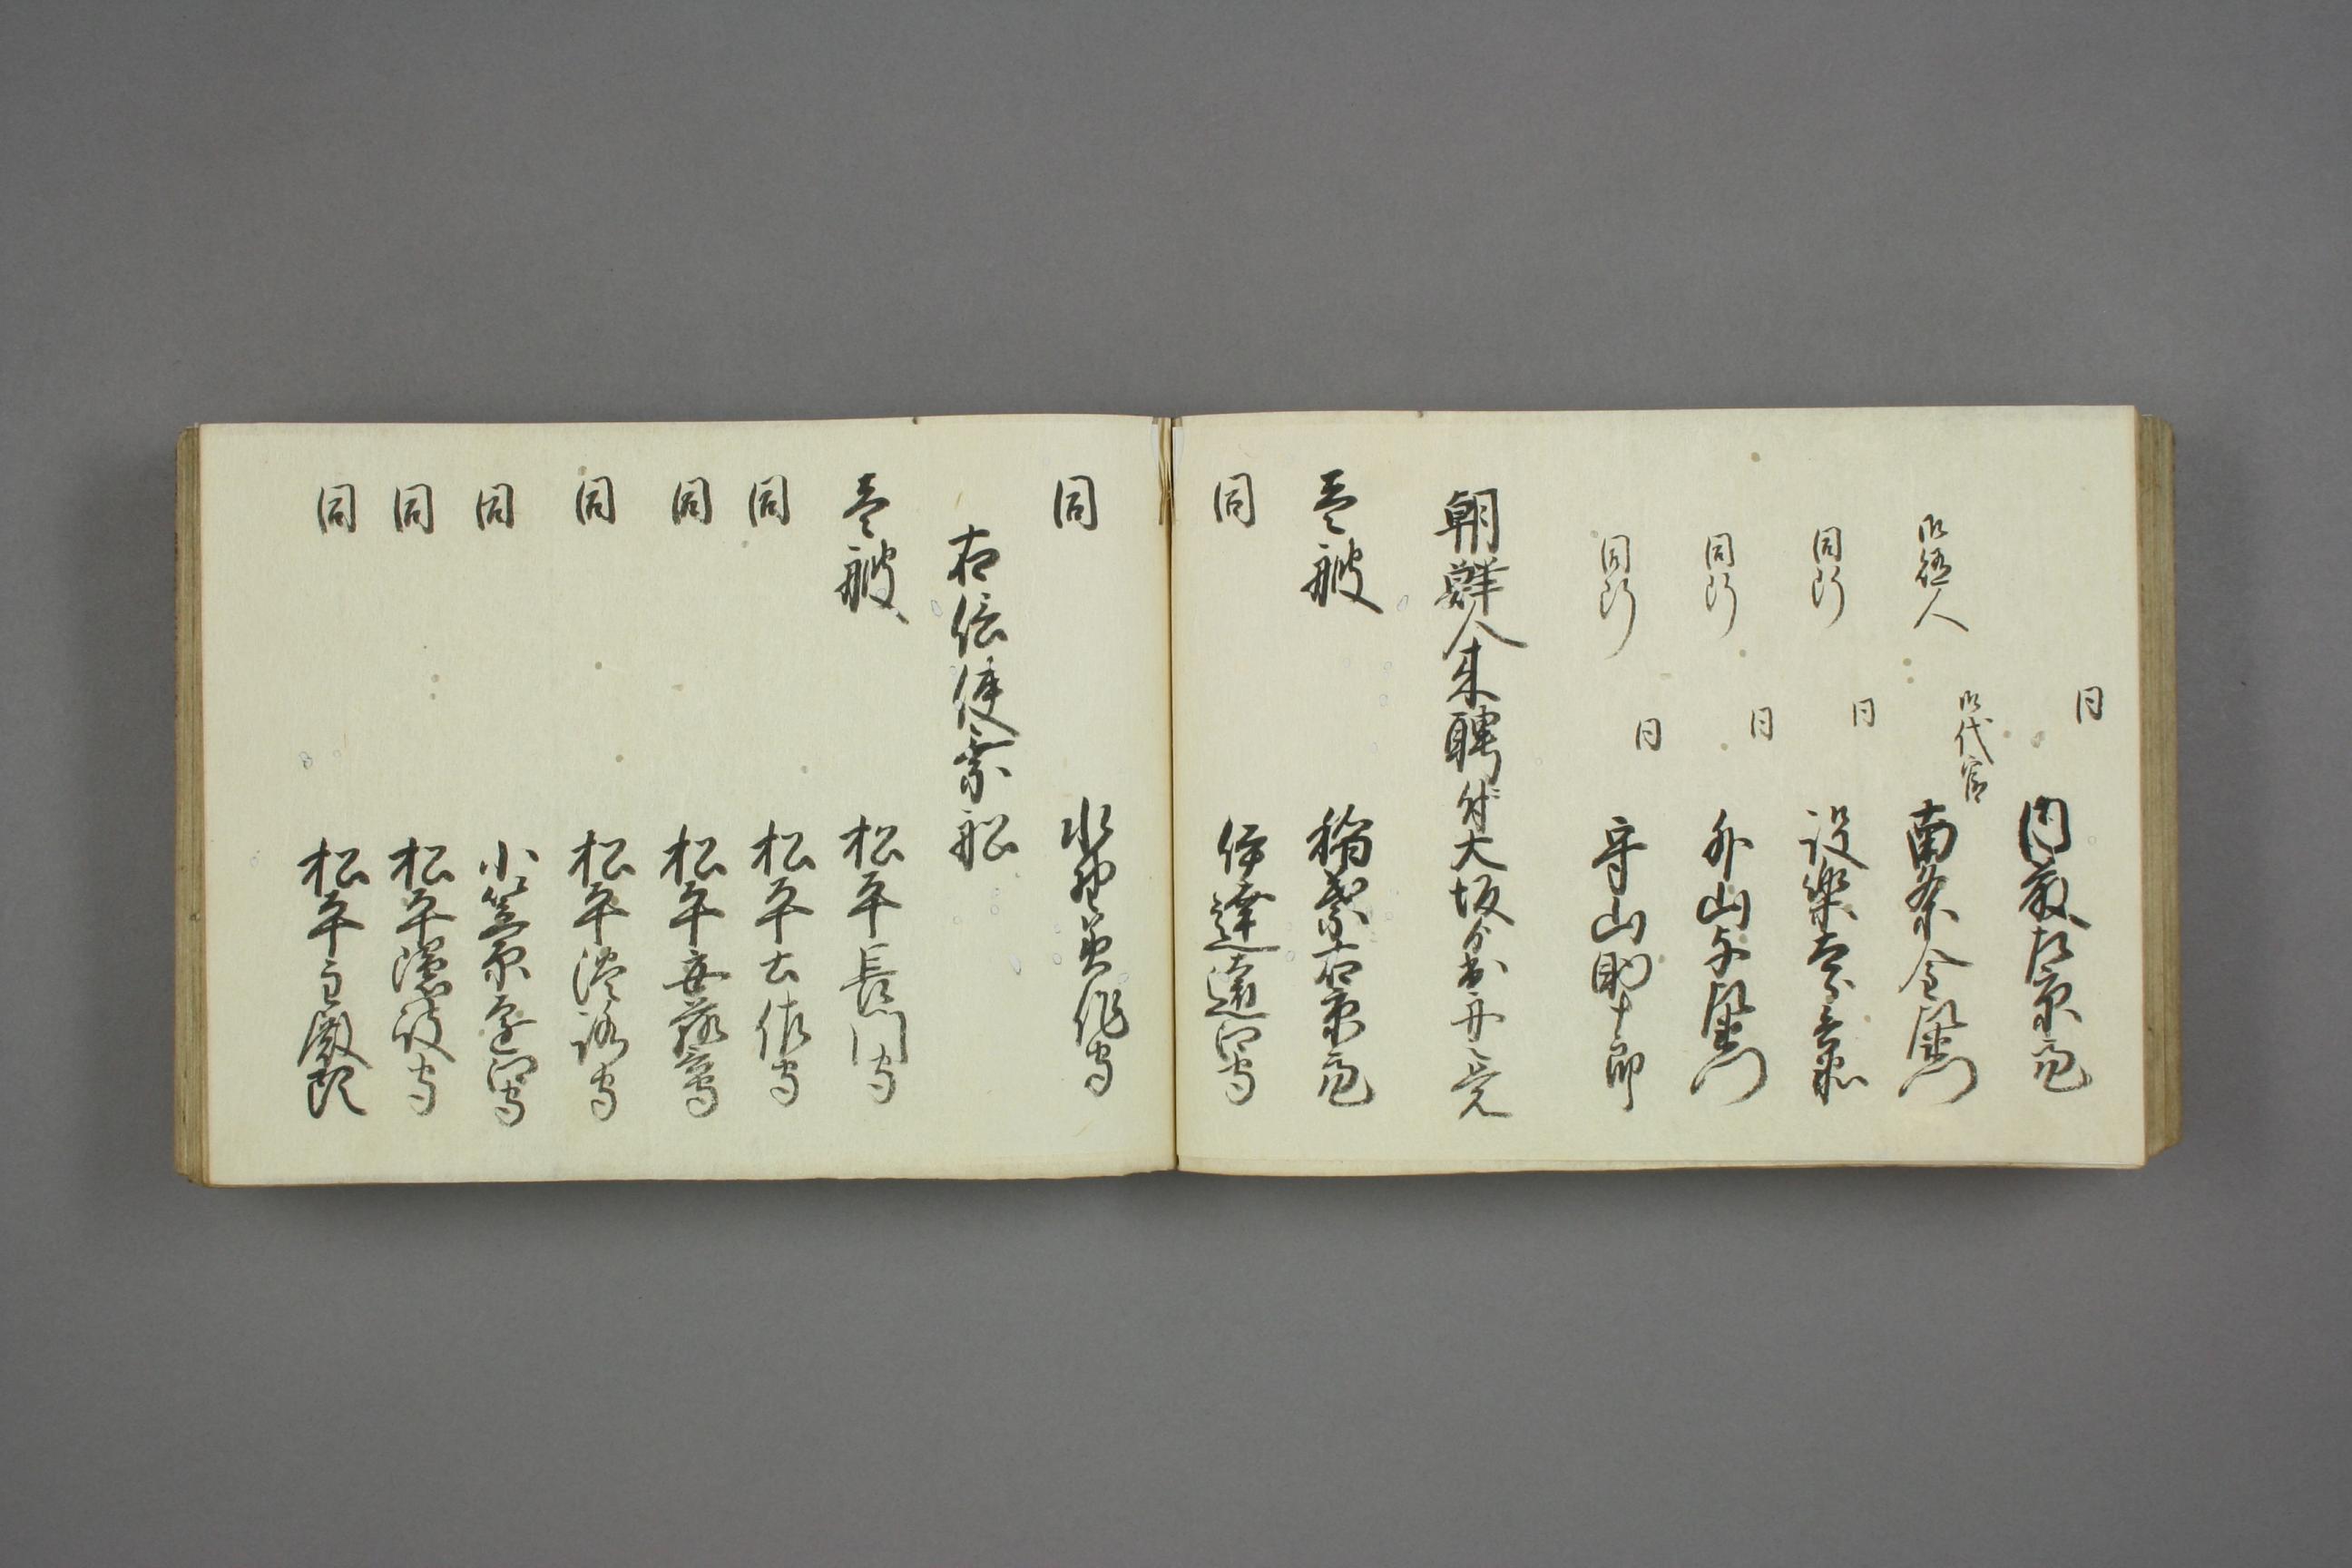 同 内藤左京亮
御代官
御徒人 南条金左衛門
同断 同 設楽太郎兵衛
同断 同 外山与左衛門
同断 同 守山助十郎
朝鮮人来聘ニ付大坂ゟ出舟之覚
壱艘 稲葉右京亮
同 伊達遠江守
同 水野美作守
右信使乗船
壱艘 松平長門守
同 松平土佐守
同 松平安藝守
同 松平淡路守
同 小笠原遠江守
同 松平隠岐守
同 松平主殿頭